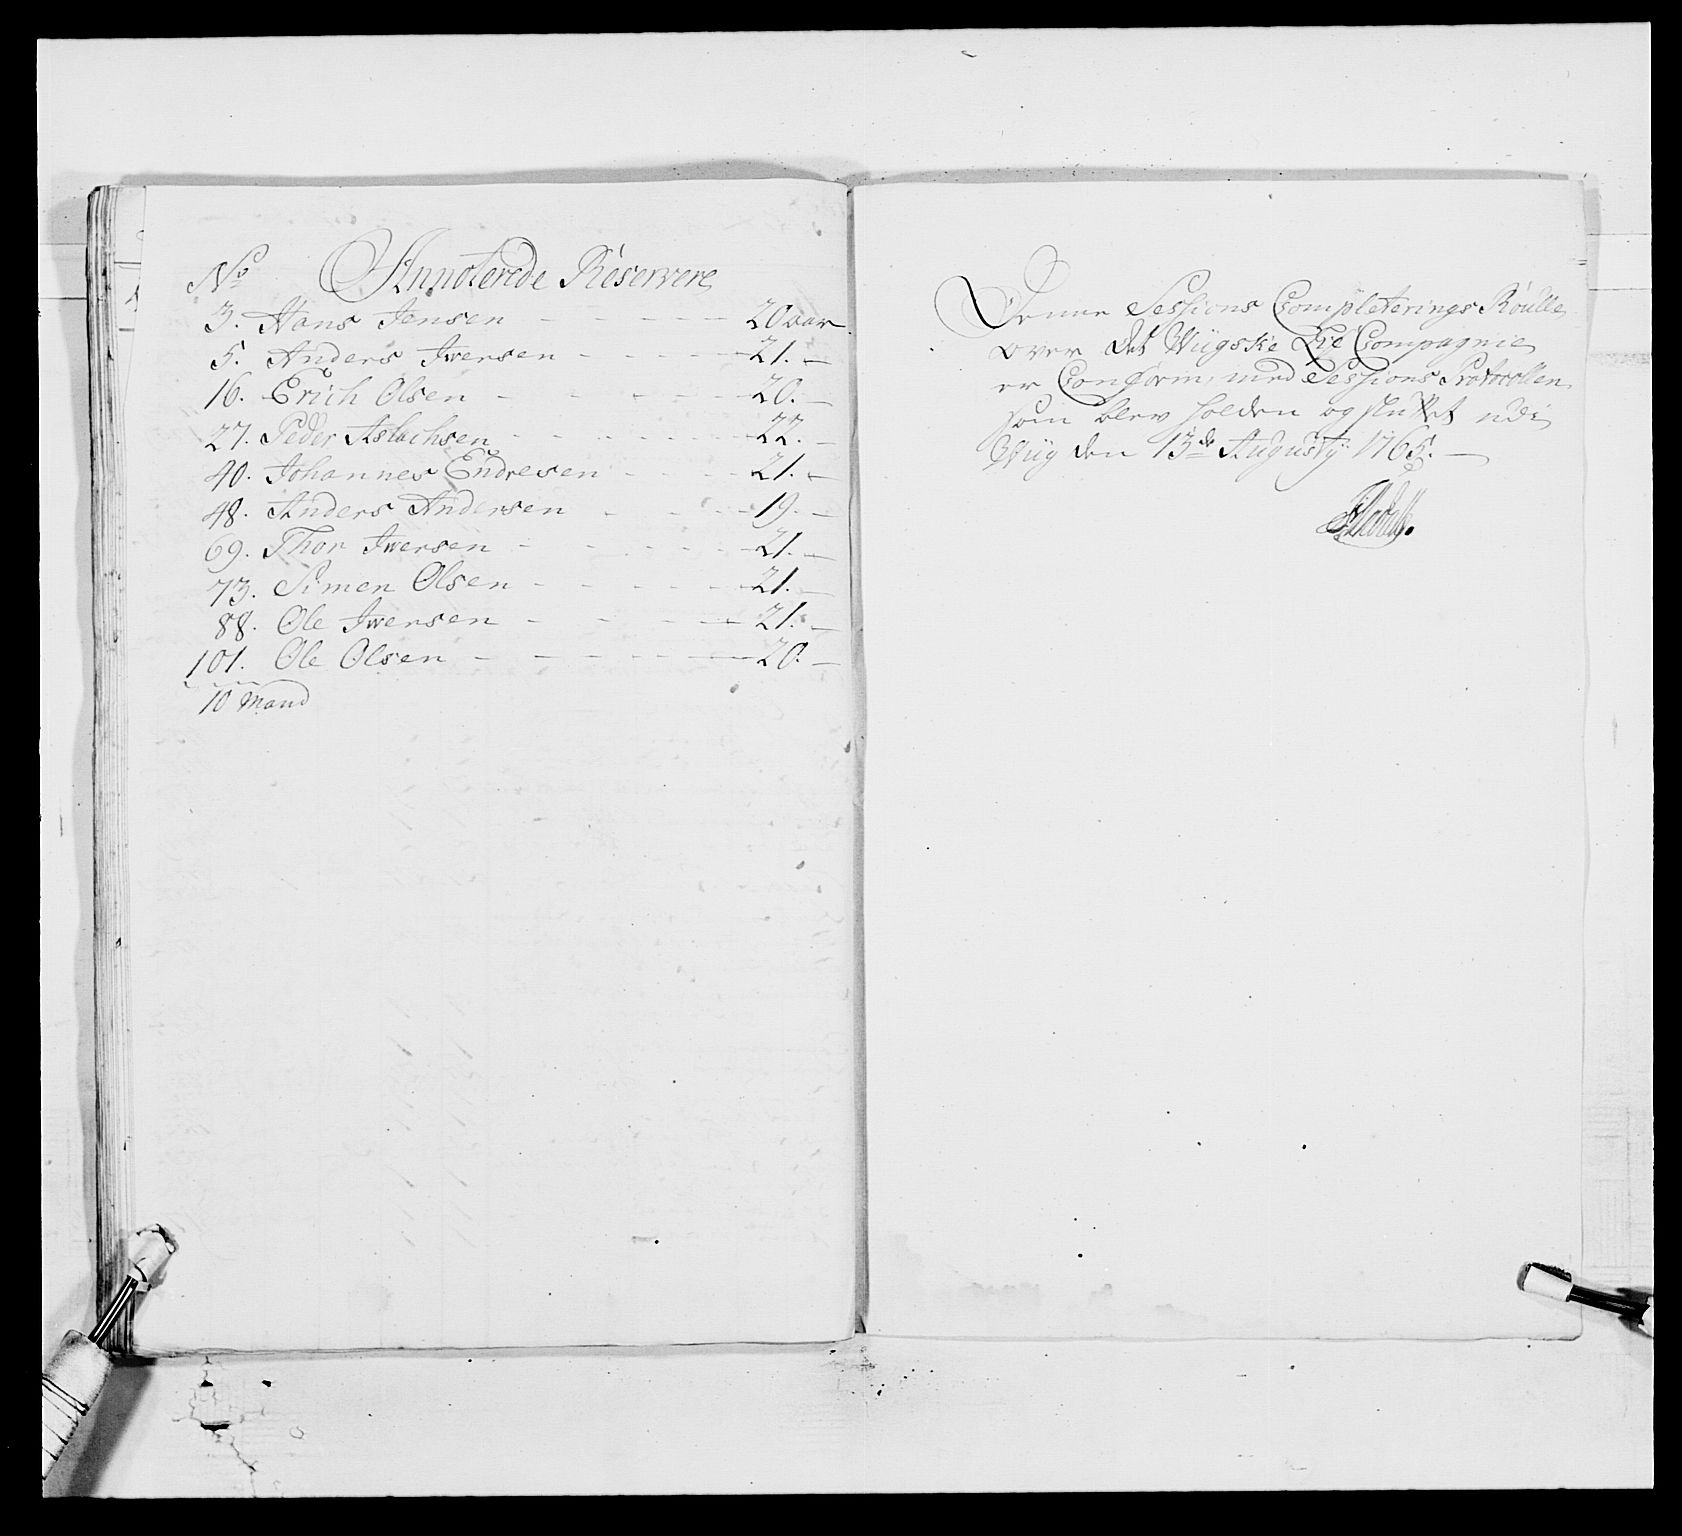 No Annoterede Reservere
3. Hans Jensen - - - - - 20 aar
5. Anders Iwersen - - - - 21. -
16. Erich Olsen - - - - - 20. -
27. Peder Aslachsen - - - - - 22. -
40. Johannes Endresen - - - 21. -
48. Anders Andersen - - - 19. -
69. Thor Iwersen - - - - - 21. -
73. Simen Olsen - - - - - 21. -
88. Ole Iwersen - - - - - 21. -
101. Ole Olsen - - - - - 20. -
10 Mand
Denne Sessions Completerings Roulle
over det Wiigske Compagnie
er Conform, med Sessions Protocollen
som blev holden og sluttet udi
Wiig den 13de Augusty 1765. -